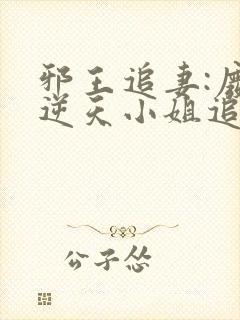 邪王追妻:废
逆天小姐追
公子怂